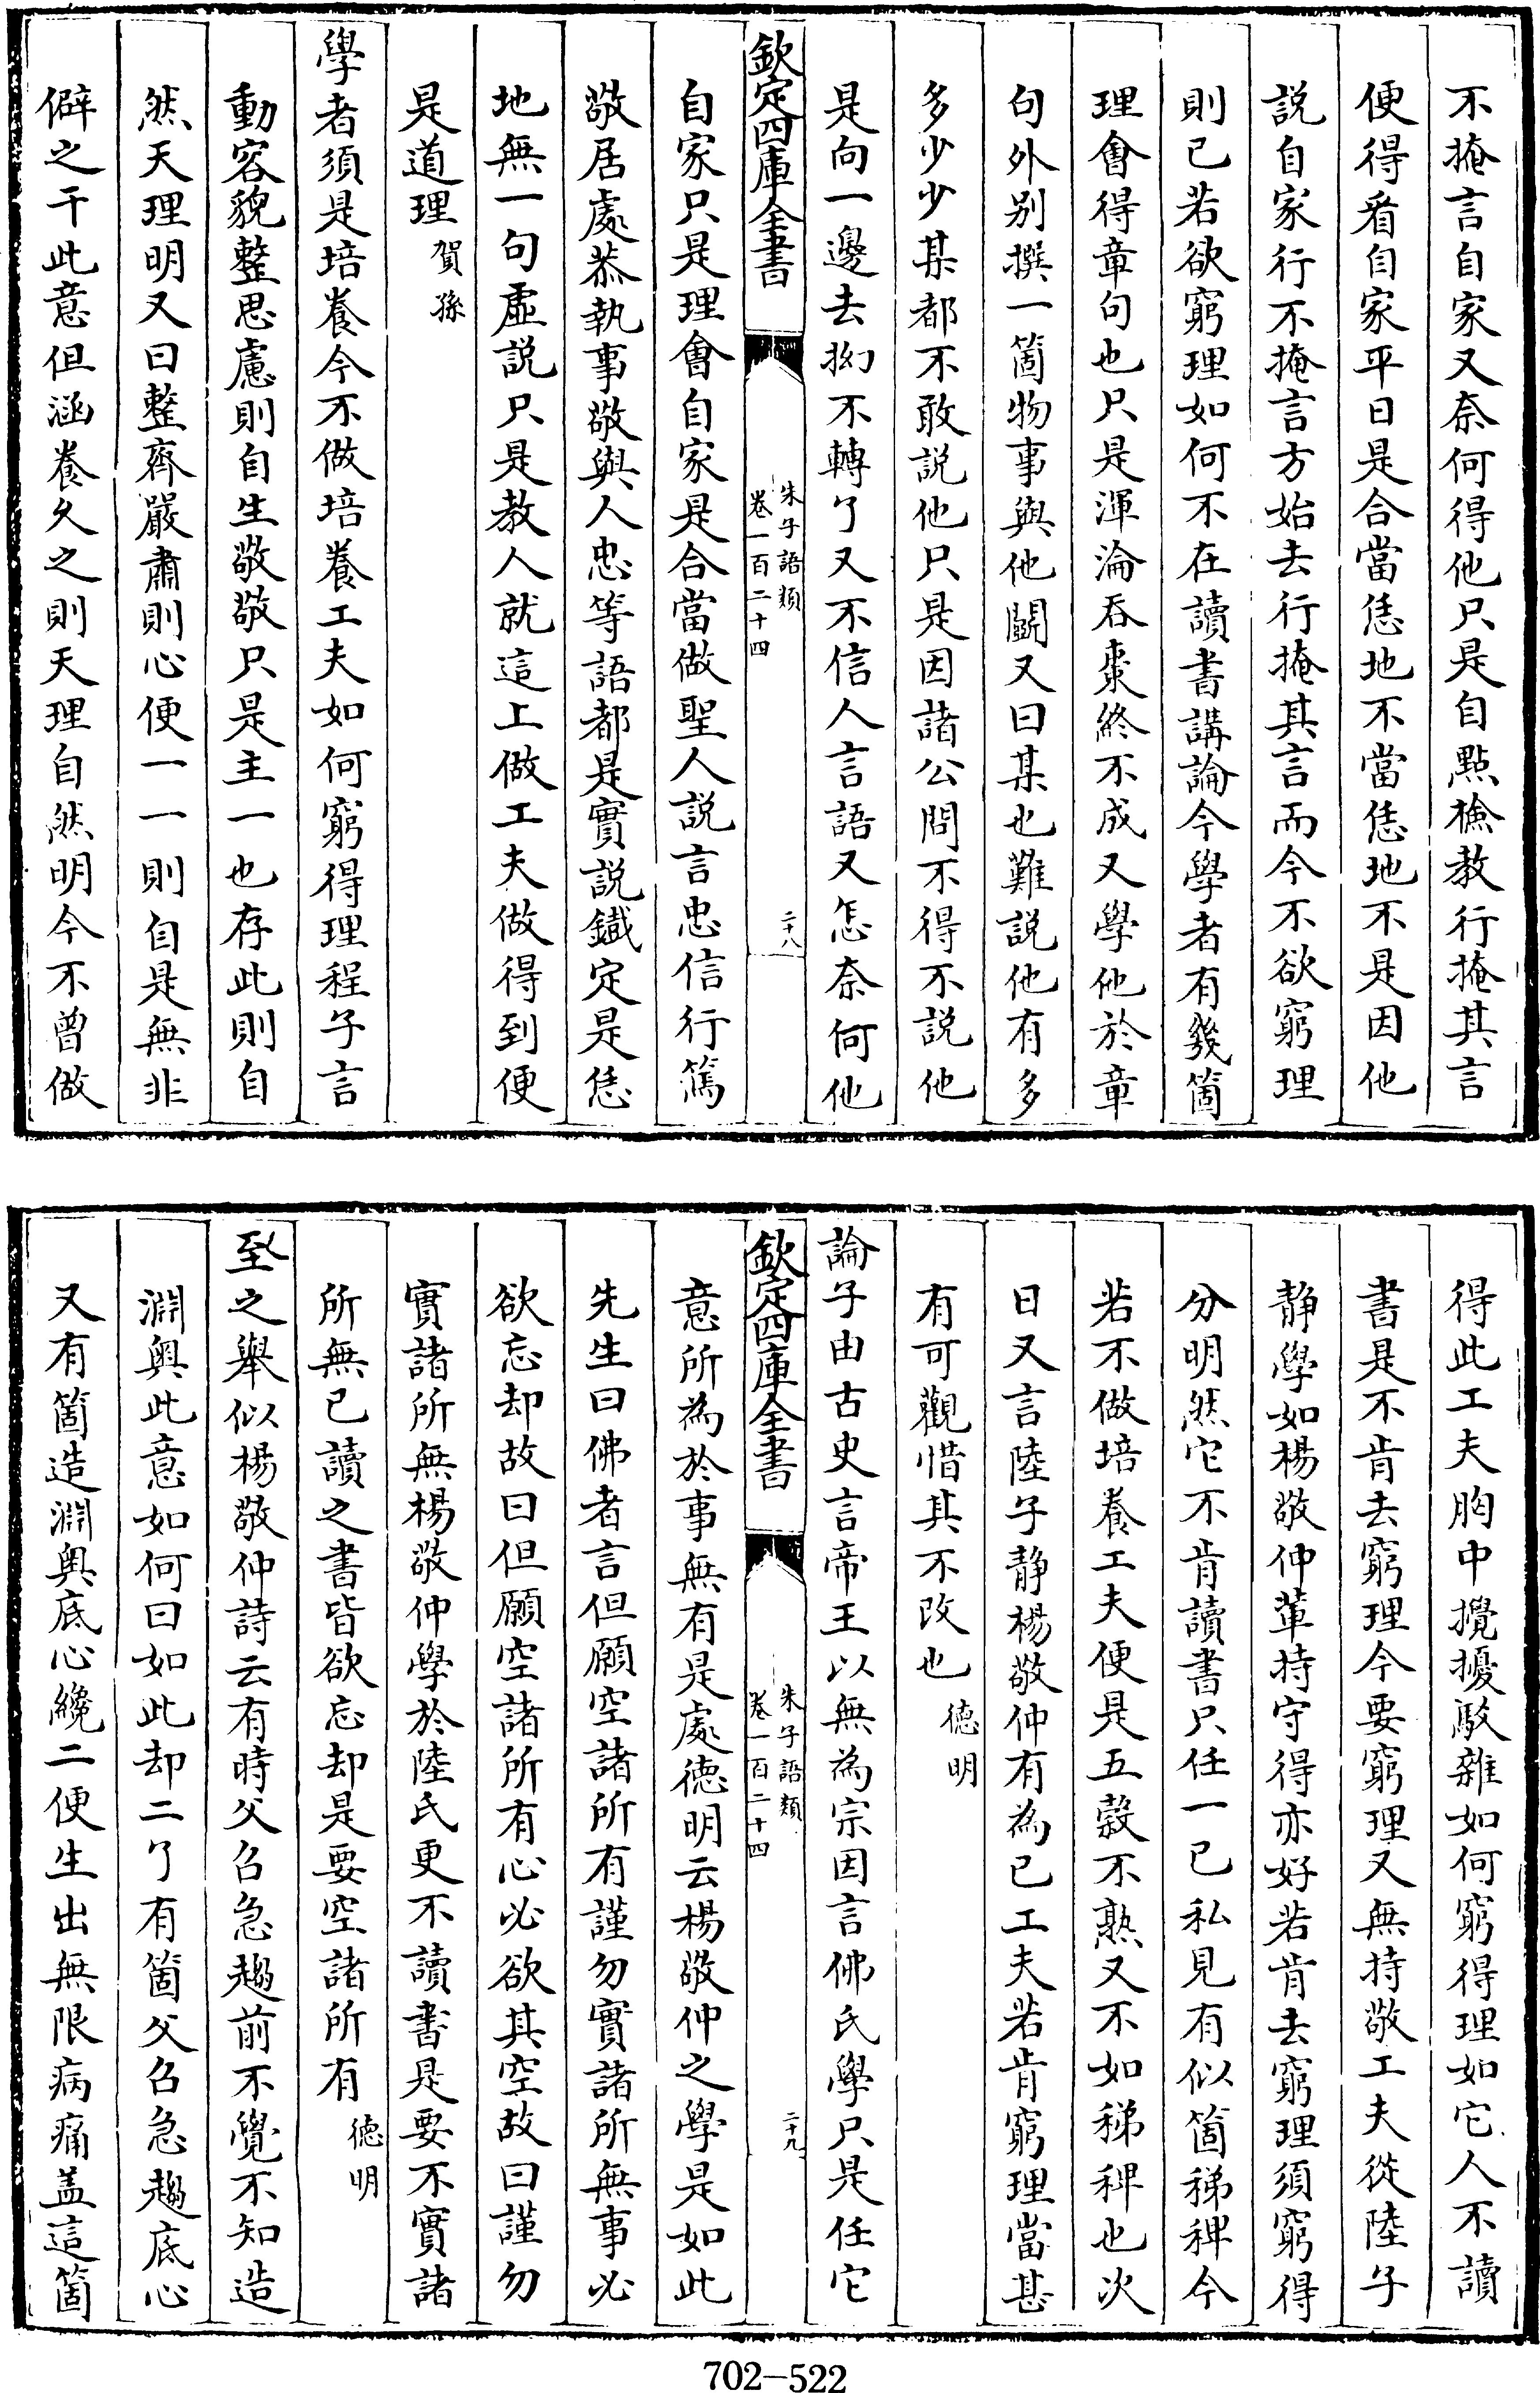 不掩言自家又奈何得他只是自點檢教行掩其言
便得看自家平日是合當恁地不當恁地不是因他
説自家行不掩言方始去行掩其言而今不欲窮理
則已若欲窮理如何不在讀書講論今學者有幾箇
理㑹得章句也只是渾淪吞棗終不成又學他於章
句外别撰一箇物事與他鬬又曰某也難説他有多
多少少某都不敢説他只是因諸公問不得不説他
是向一邊去拗不轉了又不信人言語又怎奈何他
欽定四庫全書
朱子語類
卷一百二十四
二十八
自家只是理㑹自家是合當做聖人説言忠信行篤
敬居處恭執事敬與人忠等語都是實説鐵定是恁
地無一句虚説只是教人就這上做工夫做得到便
是道理賀孫
學者須是培養今不做培養工夫如何窮得理程子言
動容貌整思慮則自生敬敬只是主一也存此則自
然天理明又曰整齊嚴肅則心便一一則自是無非
僻之干此意但涵養久之則天理自然明今不曾做
得此工夫胸中擾擾駁雜如何窮得理如它人不讀
書是不肯去窮理今要窮理又無持敬工夫從陸子
静學如楊敬仲輩持守得亦好若肯去窮理須窮得
分明然它不肯讀書只任一已私見有似箇稊稗今
若不做培養工夫便是五穀不熟又不如稊稗也次
日又言陸子静楊敬仲有為已工夫若肯窮理當甚
有可觀惜其不改也德明
論子由古史言帝王以無為宗因言佛氏學只是任它
欽定四庫全書
朱子語類
卷一百二十四
二十九
意所為於事無有是處德明云楊敬仲之學是如此
先生曰佛者言但願空諸所有謹勿實諸所無事必
欲忘却故曰但願空諸所有心必欲其空故曰謹勿
實諸所無楊敬仲學於陸氏更不讀書是要不實諸
所無已讀之書皆欲忘却是要空諸所有德明
至之舉似楊敬仲詩云有時父召急趨前不覺不知造
淵奥此意如何曰如此却二了有箇父召急趨底心
又有箇造淵奥底心纔二便生出無限病痛盖這箇
702-522